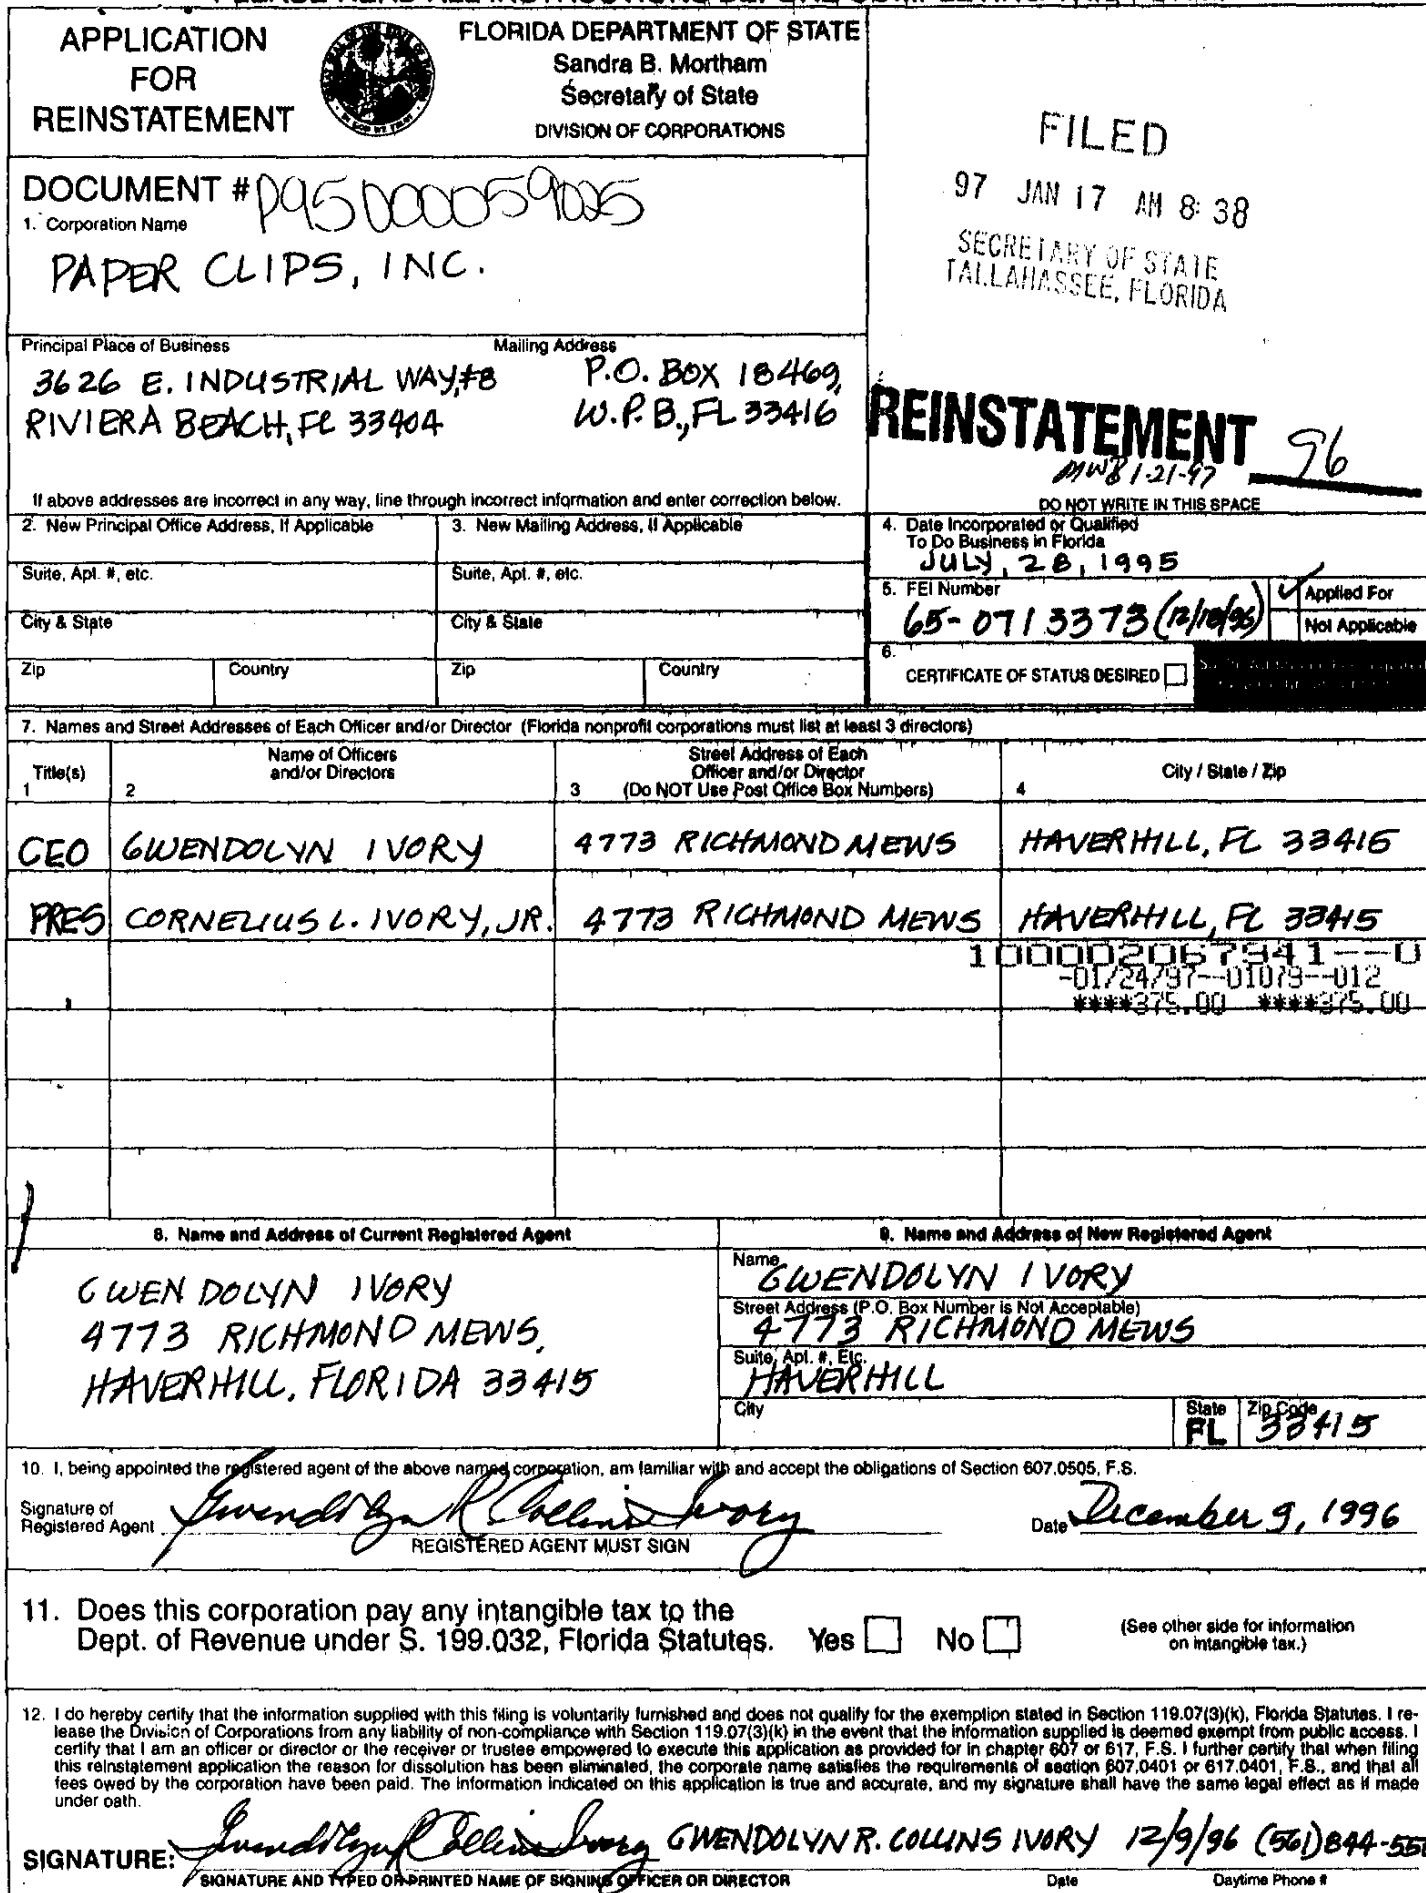 APPLICATION
FOR
REINSTATEMENT
FLORIDA DEPARTMENT OF STATE
Sandra B. Mortham
Secretary of State
DIVISION OF CORPORATIONS
FILED
97 JAN 17 AM 8:38
SECRETARY OF STATE
TALLAHASSEE, FLORIDA
DOCUMENT # P95000059025
1. Corporation Name
PAPER CLIPS, INC.
Principal Place of Business
3626 E. INDUSTRIAL WAY, #8
RIVIERA BEACH, FL 33404
Mailing Address
P.O. BOX 18469,
W.P.B., FL 33416
REINSTATEMENT 96
MWB 1-21-97
If above addresses are incorrect in any way, line through incorrect information and enter correction below.
DO NOT WRITE IN THIS SPACE
2. New Principal Office Address, If Applicable
3. New Mailing Address, If Applicable
4. Date Incorporated or Qualified
To Do Business in Florida
JULY, 28, 1995
Suite, Apt. #, etc.
Suite, Apt. #, etc.
5. FEI Number
65-0713373 (12/18/96)
Applied For
Not Applicable
City & State
City & State
6.
CERTIFICATE OF STATUS DESIRED
Zip
Country
Zip
Country
7. Names and Street Addresses of Each Officer and/or Director (Florida nonprofit corporations must list at least 3 directors)
Title(s)
1
Name of Officers
and/or Directors
2
Street Address of Each
Officer and/or Director
3 (Do NOT Use Post Office Box Numbers)
City / State / Zip
4
CEO GWENDOLYN IVORY 4773 RICHMOND MEWS HAVERHILL, FL 33415
PRES CORNELIUS L. IVORY, JR. 4773 RICHMOND MEWS HAVERHILL, FL 33415
100002067941--0
-01/24/97--01079--012
****375.00 ****375.00
8. Name and Address of Current Registered Agent
GWENDOLYN IVORY
4773 RICHMOND MEWS,
HAVERHILL, FLORIDA 33415
9. Name and Address of New Registered Agent
Name
GWENDOLYN IVORY
Street Address (P.O. Box Number is Not Acceptable)
4773 RICHMOND MEWS
Suite, Apt. #, Etc.
HAVERHILL
City
State
FL
Zip Code
33415
10. I, being appointed the registered agent of the above named corporation, am familiar with and accept the obligations of Section 607.0505, F.S.
Signature of
Registered Agent Gwendolyn R Collins Ivory
REGISTERED AGENT MUST SIGN
Date December 9, 1996
11. Does this corporation pay any intangible tax to the
Dept. of Revenue under S. 199.032, Florida Statutes. Yes No
(See other side for information
on intangible tax.)
12. I do hereby certify that the information supplied with this filing is voluntarily furnished and does not qualify for the exemption stated in Section 119.07(3)(k), Florida Statutes. I re-
lease the Division of Corporations from any liability of non-compliance with Section 119.07(3)(k) in the event that the information supplied is deemed exempt from public access. I
certify that I am an officer or director or the receiver or trustee empowered to execute this application as provided for in chapter 607 or 617, F.S. I further certify that when filing
this reinstatement application the reason for dissolution has been eliminated, the corporate name satisfies the requirements of section 607.0401 or 617.0401, F.S., and that all
fees owed by the corporation have been paid. The information indicated on this application is true and accurate, and my signature shall have the same legal effect as if made
under oath.
SIGNATURE: Gwendolyn R Collins Ivory GWENDOLYN R. COLLINS IVORY 12/9/96 (561)844-55
SIGNATURE AND TYPED OR PRINTED NAME OF SIGNING OFFICER OR DIRECTOR
Date
Daytime Phone #